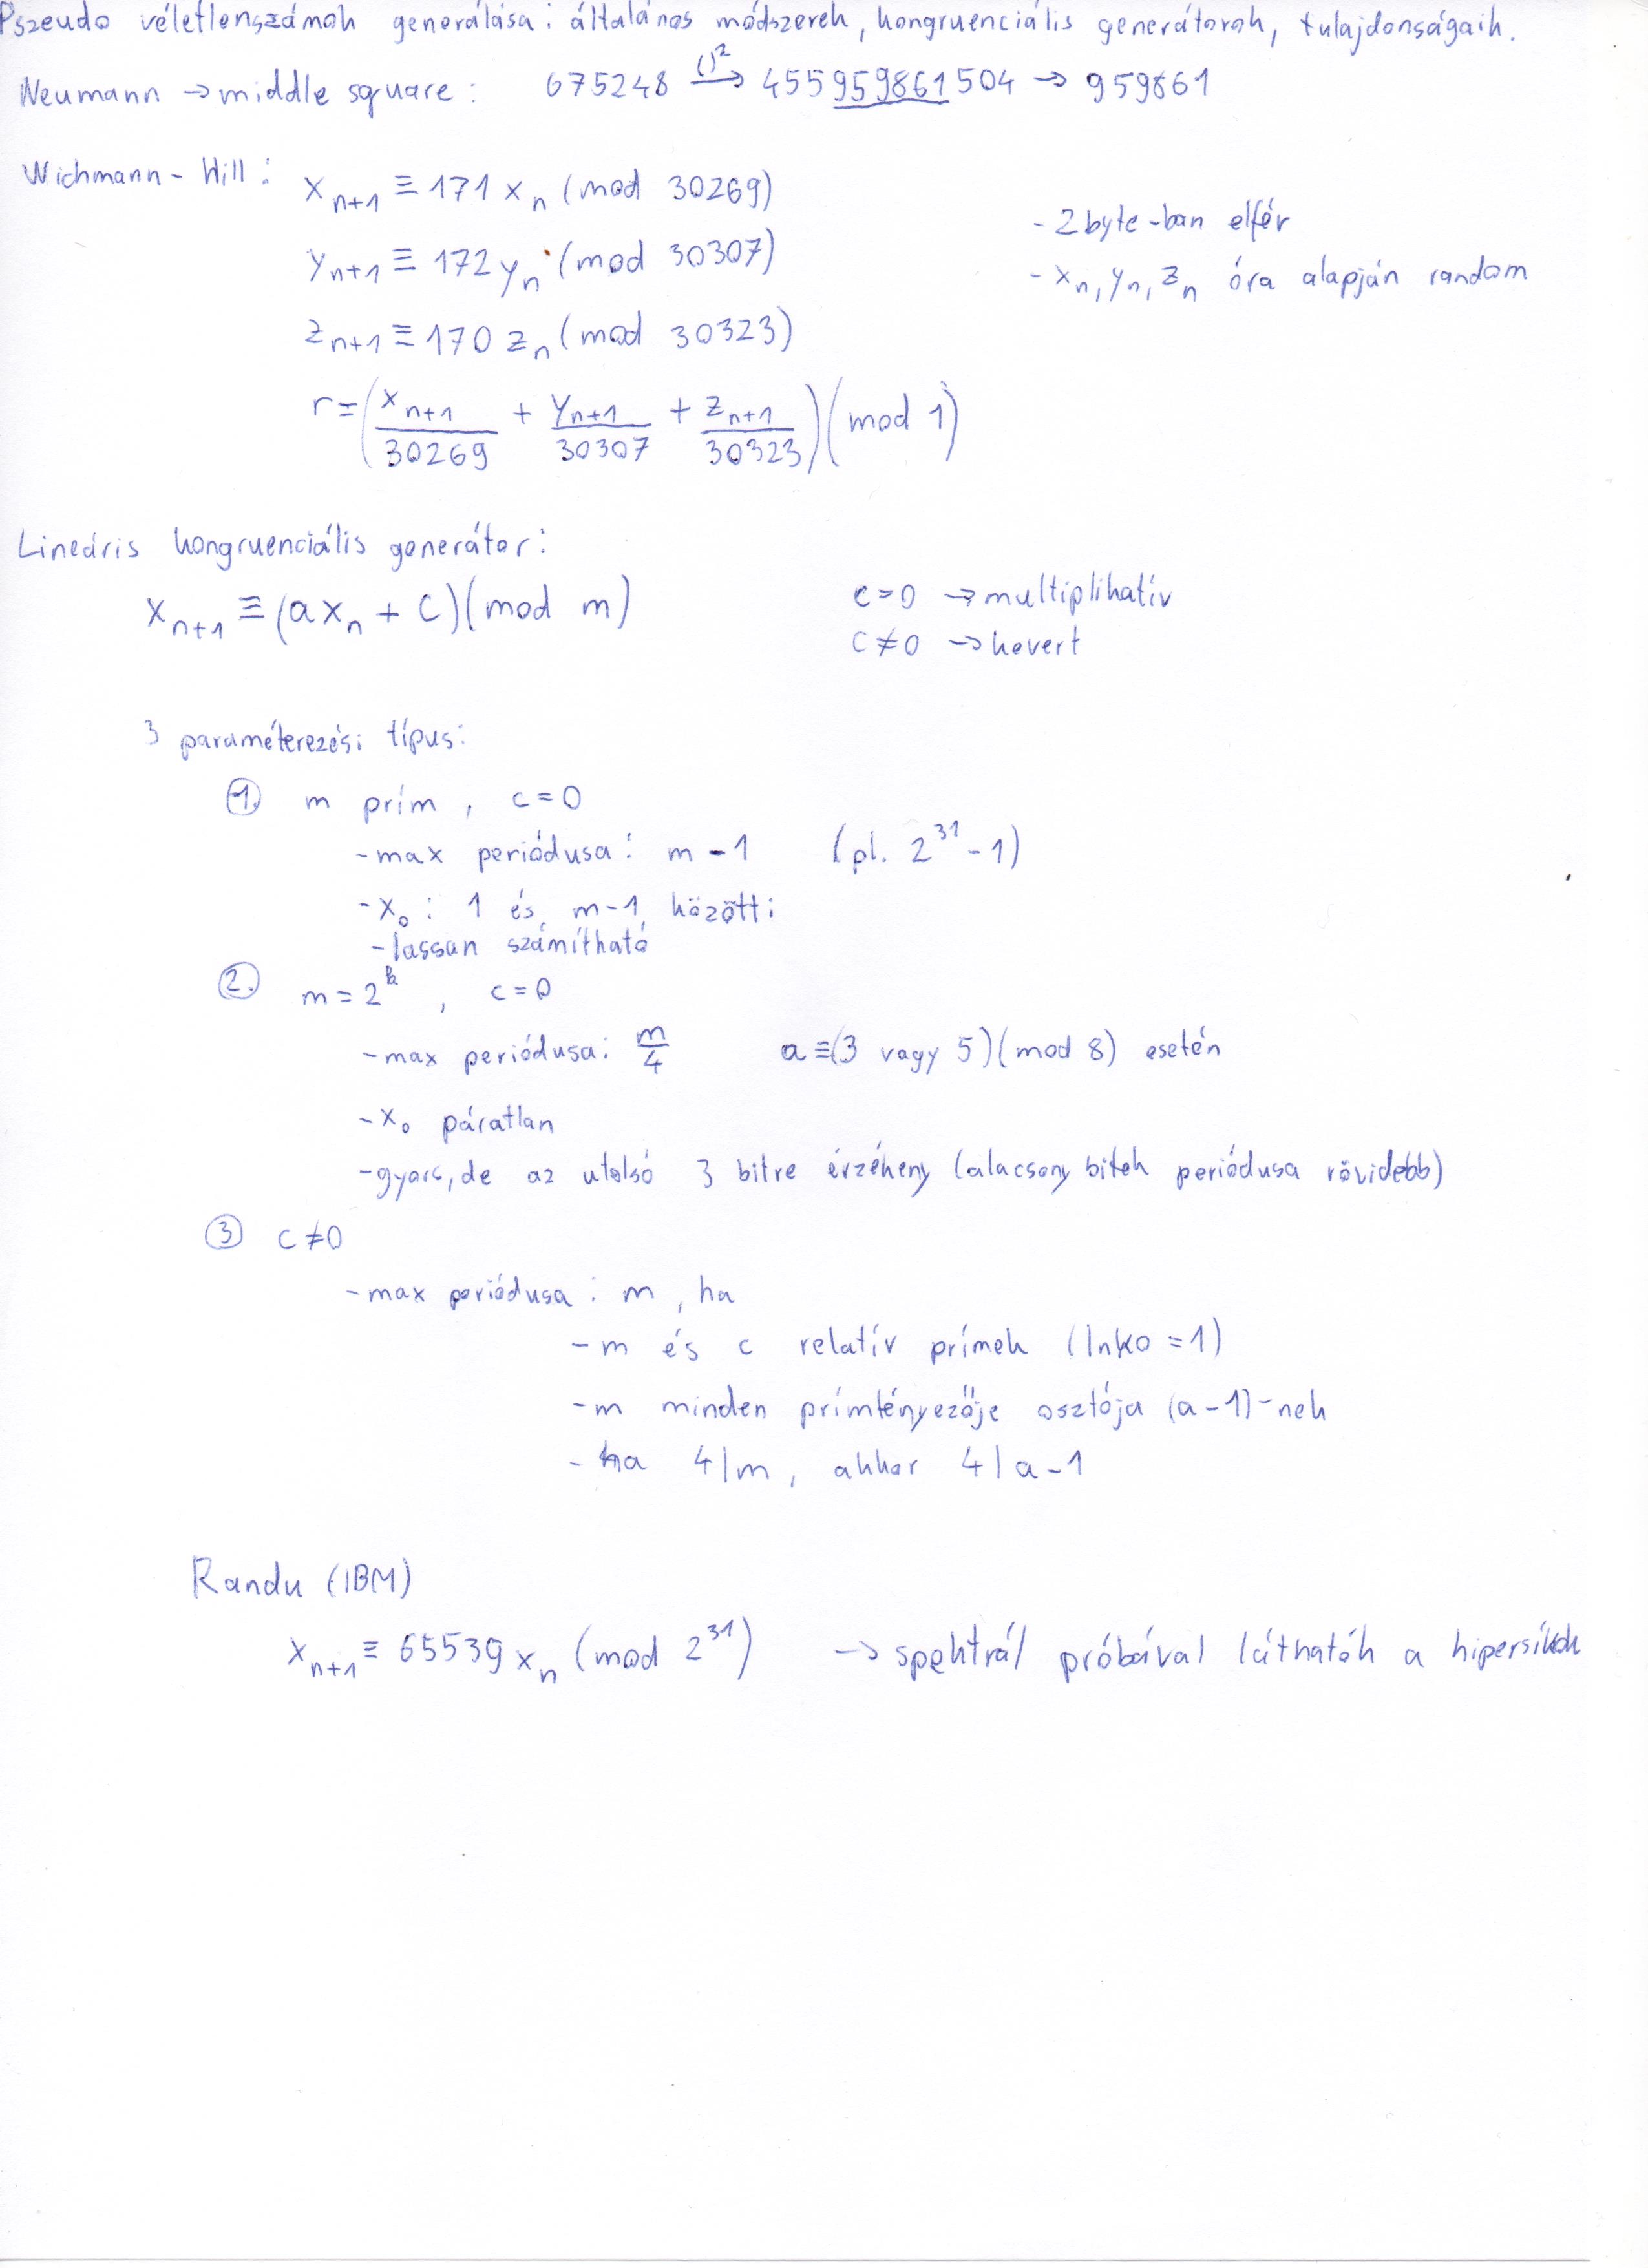 Pszeudo véletlenszámok generálása: általános módszerek, kongruenciális generátorok, tulajdonságaik.
Neumann → middle square: 675248 ()² → 455959861504 → 959861
Wichmann-Hill: xₙ₊₁ ≡ 171 xₙ (mod 30269)
- 2 byte-ban elfér
yₙ₊₁ ≡ 172 yₙ (mod 30307)
- xₙ, yₙ, zₙ óra alapján random
zₙ₊₁ ≡ 170 zₙ (mod 30323)
r = (xₙ₊₁/30269 + yₙ₊₁/30307 + zₙ₊₁/30323) (mod 1)
Lineáris kongruenciális generátor:
xₙ₊₁ ≡ (axₙ + c)(mod m)
c=0 → multiplikatív
c≠0 → kevert
3 paraméterezési típus:
1. m prím, c=0
- max periódusa: m-1 (pl. 2³¹-1)
- x₀: 1 és m-1 közötti
- lassan számítható
2. m = 2ᵏ, c=0
- max periódusa: m/4 a ≡ (3 vagy 5)(mod 8) esetén
- x₀ páratlan
- gyors, de az utolsó 3 bitre érzékeny (alacsony bitek periódusa rövidebb)
3 c≠0
- max periódusa: m, ha
- m és c relatív prímek (lnko=1)
- m minden prímtényezője osztója (a-1)-nek
- ha 4|m, akkor 4|a-1
Randu (IBM)
xₙ₊₁ ≡ 65539 xₙ (mod 2³¹) → spektrál próbával láthatók a hipersíkok